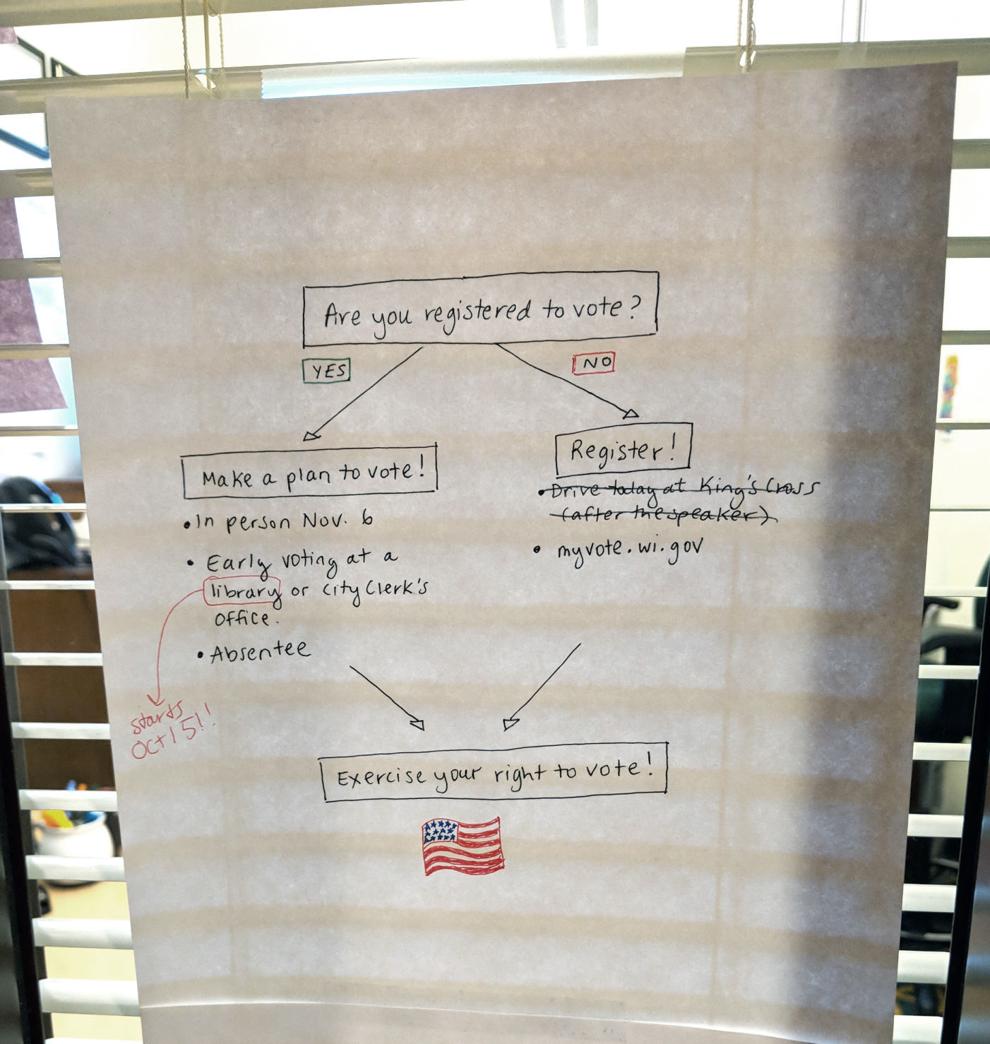 Are you registered to vote?
YES
NO
Make a plan to vote!
• In person Nov. 6
• Early voting at a
library or City Clerk's
office.
• Absentee
starts
Oct 15!!
Register!
• Drive today at King's Cross
(after the speaker)
• myvote.wi.gov
Exercise your right to vote!